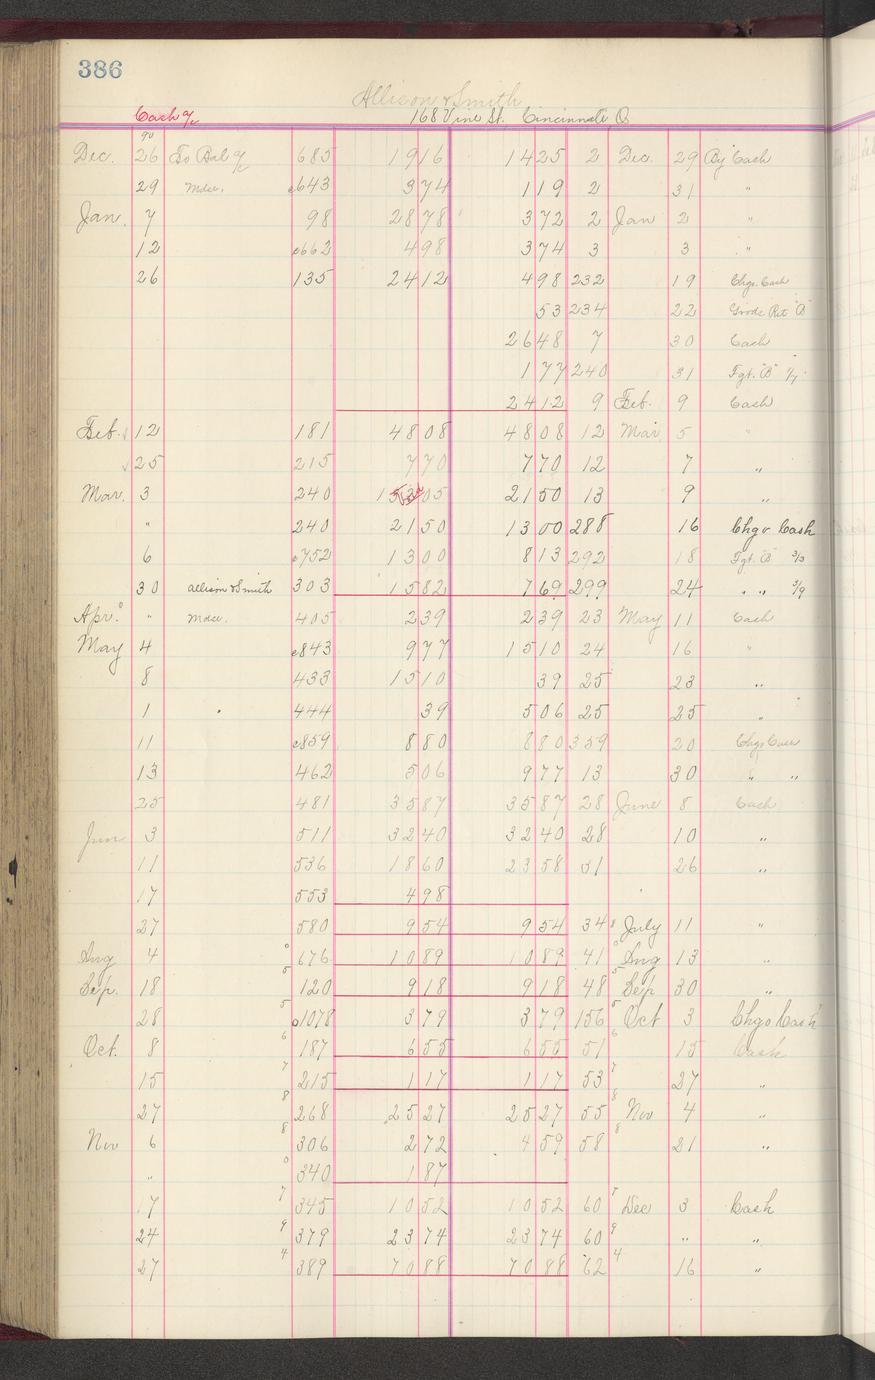 386
Allison & Smith
Cash a/c 168 Vine St. Cincinnati O
90
Dec. 26 To Bal a/c 685 1916 1425 2 Dec. 29 By Cash
29 Mdse. c643 374 119 2 31 "
Jan. 7 98 2878 372 2 Jan 2 "
12 c662 498 374 3 3 "
26 135 2412 498 232 19 Chgo. Cash
53 234 22 Goods Ret "B"
2648 7 30 Cash
177 240 31 Fgt. "B" 1/7
2412 9 Feb. 9 Cash
Feb. √ 12 181 4808 4808 12 Mar 5 "
√ 25 215 770 770 12 7 "
Mar. 3 240 2150 13 9 "
" 240 2150 1300 288 16 Chgo Cash
6 c752 1300 813 292 18 Fgt. "B" 3/3
30 Allison & Smith 303 1582 769 299 24 " " 3/9
Apr. " Mdse. 405 239 239 23 May 11 Cash
May 4 c843 977 1510 24 16 "
8 433 1510 39 25 23 "
1 444 39 506 25 25 "
11 c859 880 880 359 20 Chgo Cash
13 462 506 977 13 30 " "
25 481 3587 3587 28 June 8 Cash
Jun 3 511 3240 3240 28 10 "
11 536 1860 2358 31 26 "
17 553 498
27 580 954 954 34 8 July 11 "
Aug 4 0 676 1089 1089 41 0 Aug 13 "
Sep. 18 5 120 918 918 48 5 Sep 30 "
28 5 c1078 379 379 156 5 Oct 3 Chgo Cash
Oct. 8 6 187 655 655 51 6 15 Cash
15 7 215 117 117 53 7 27 "
27 8 268 2527 2527 55 8 Nov 4 "
Nov 6 8 306 272 459 58 8 21 "
" 0 340 187
17 7 345 1052 1052 60 7 Dec 3 Cash
24 9 379 2374 2374 60 9 " "
27 4 389 7088 7088 62 4 16 "